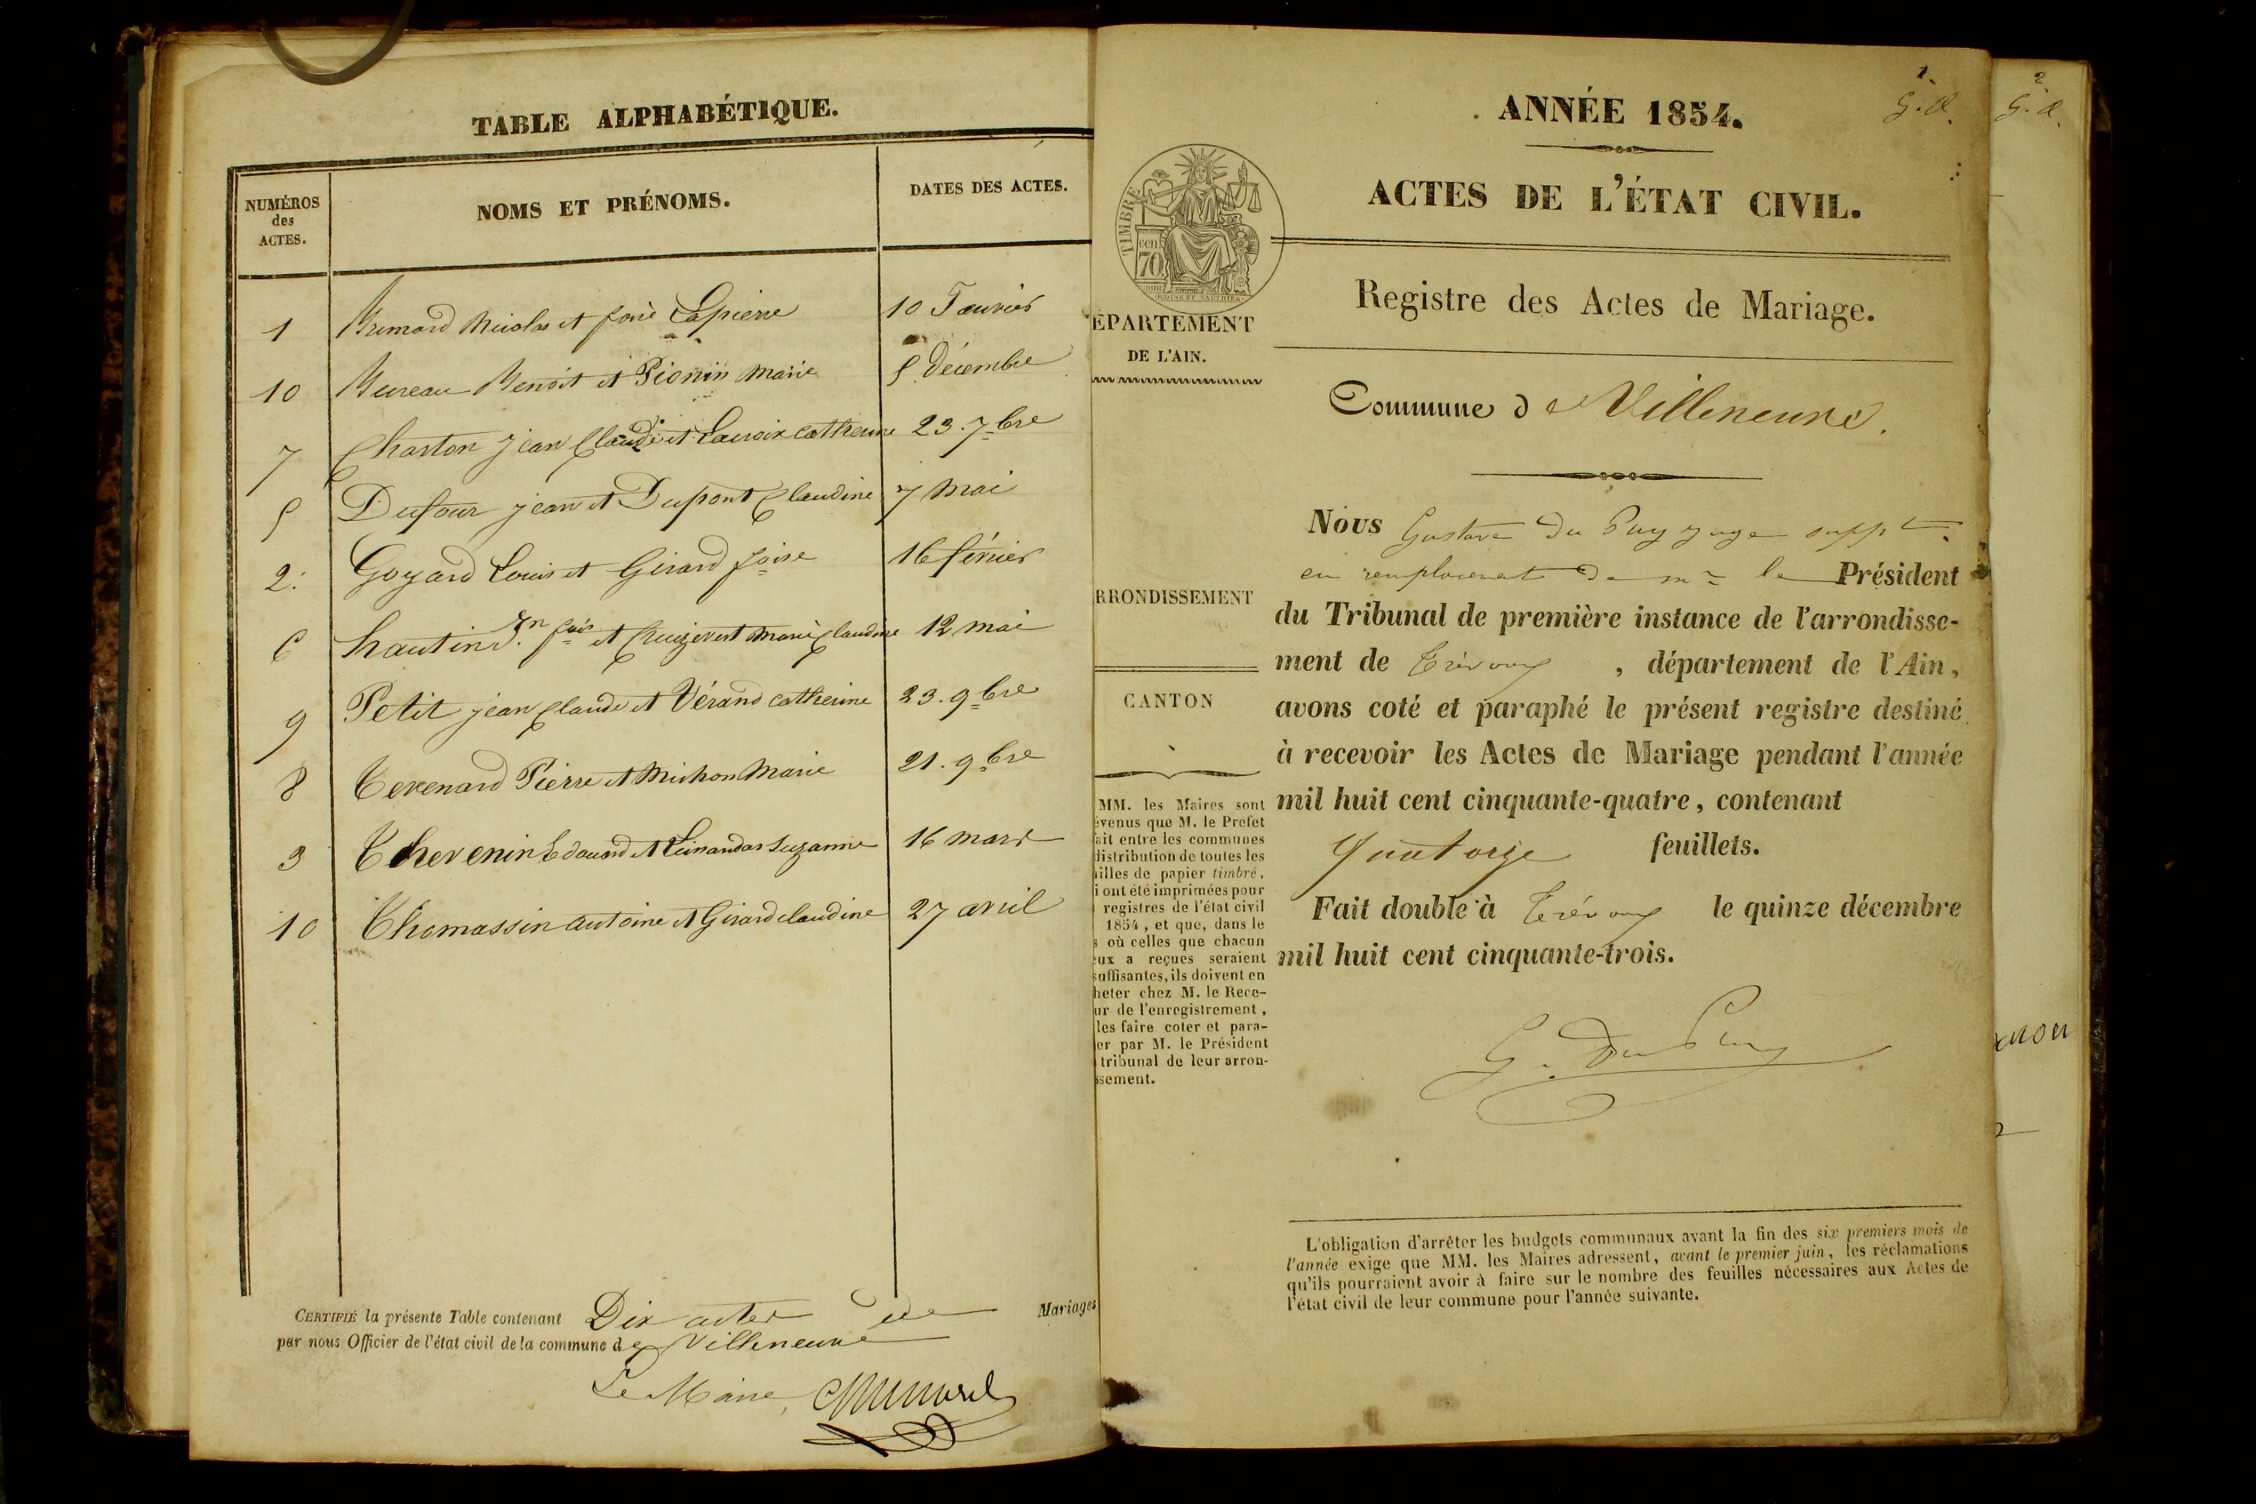 TABLE ALPHABÉTIQUE.
NUMÉROS
des
ACTES.
NOMS ET PRÉNOMS.
DATES DES ACTES.
1 Nicolas et Lapierre 10 Janvier
10 Bureau Benoit et Pionin Marie 5 Décembre
7 Charton Jean Claude et Lacroix Catherine 23. 7bre
5 Dufour Jean et Dupont Claudine 7 Mai
2. Goyard Louis et Girard fçoise 16 février
6 hautin Jn fçois et Marie Claudine 12 mai
9 Petit jean Claude et Vérand Catherine 23. 9bre
8 Pierre et Michon Marie 21. 9bre
3 Thevenin Edouard et Suzanne 16 mars
10 Thomassin Antoine et Girard Claudine 27 avril
CERTIFIÉ la présente Table contenant Dix actes de Mariages
par nous Officier de l'état civil de la commune de Villeneuve
Le Maire,
1.
G. d.
ANNÉE 1854.
ACTES DE L'ÉTAT CIVIL.
TIMBRE
cen
70
Registre des Actes de Mariage.
ÉPARTEMENT
DE L'AIN.
Commune de Villeneuve.
RRONDISSEMENT
CANTON
MM. les Maires sont
évenus que M. le Préfet
fait entre les communes
distribution de toutes les
illes de papier timbré,
i ont été imprimées pour
registres de l'état civil
1854, et que, dans le
s où celles que chacun
eux a reçues seraient
suffisantes, ils doivent en
heter chez M. le Rece-
ur de l'enregistrement,
les faire coter et para-
er par M. le Président
tribunal de leur arron-
ssement.
Nous Gustave Du Puy juge suppt
en remplacement de Mr le Président
du Tribunal de première instance de l'arrondisse-
ment de Trévoux, département de l'Ain,
avons coté et paraphé le présent registre destiné
à recevoir les Actes de Mariage pendant l'année
mil huit cent cinquante-quatre, contenant
quatorze feuillets.
Fait double à Trévoux le quinze décembre
mil huit cent cinquante-trois.
G. Du Puy
L'obligation d'arrêter les budgets communaux avant la fin des six premiers mois de
l'année exige que MM. les Maires adressent, avant le premier juin, les réclamations
qu'ils pourraient avoir à faire sur le nombre des feuilles nécessaires aux Actes de
l'état civil de leur commune pour l'année suivante.
2
G. d.